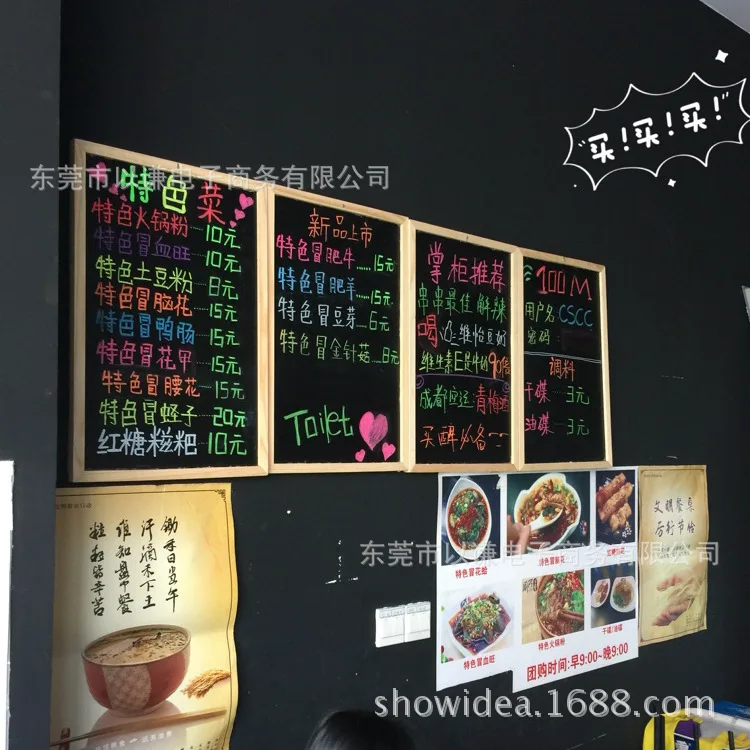 买！买！买！
东莞市以谦电子商务有限公司
特色菜
特色火锅粉 10元
特色冒血旺 10元
特色土豆粉 8元
特色冒脑花 15元
特色冒鸭肠 15元
特色冒花甲 15元
特色冒腰花 15元
特色冒蛏子 20元
红糖糍粑 10元
新品上市
特色冒肥牛......15元
特色冒肥羊......15元
特色冒豆芽......6元
特色冒金针菇...8元
Toilet
掌柜推荐
串串最佳 解辣
喝 维怡豆奶
维生素E是牛的90倍
成都 青梅酒
买醉必备
100M
用户名:CSCC
密码:
调料
干碟 3元
油碟 3元
锄禾日当午
汗滴禾下土
谁知盘中餐
粒粒皆辛苦
东莞市以谦电子商务有限公司
特色冒花蛤
特色冒脑花
红糖糍粑
特色冒血旺
特色火锅粉
干碟/油碟
团购时间:早9:00~晚9:00
文明餐桌
厉行节俭
showidea.1688.com